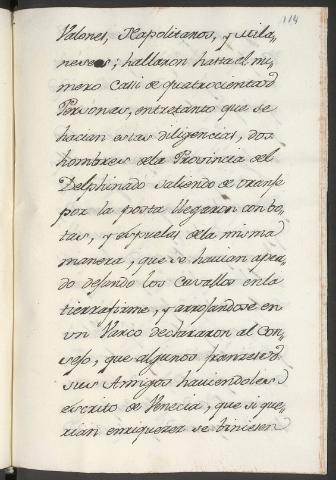 114
Valones, Napolitanos, y Mila-
neses; hallaron hasta el nu-
mero casi de quatrocientas
Personas, entretanto que se
hacian estas diligencias, dos
hombres dela Provincia del
Delphinado saliendo de
por la posta llegaron con bo-
tas, y espuelas dela misma
manera, que se havian apea-
do dejando los Cavallos enla
tierrafirme, y arrojandose en
un Varco declararon al Con-
sejo, que algunos franceses
sus Amigos haviendoles
escrito de Venecia, que si que-
rian enriquezer se biniesen